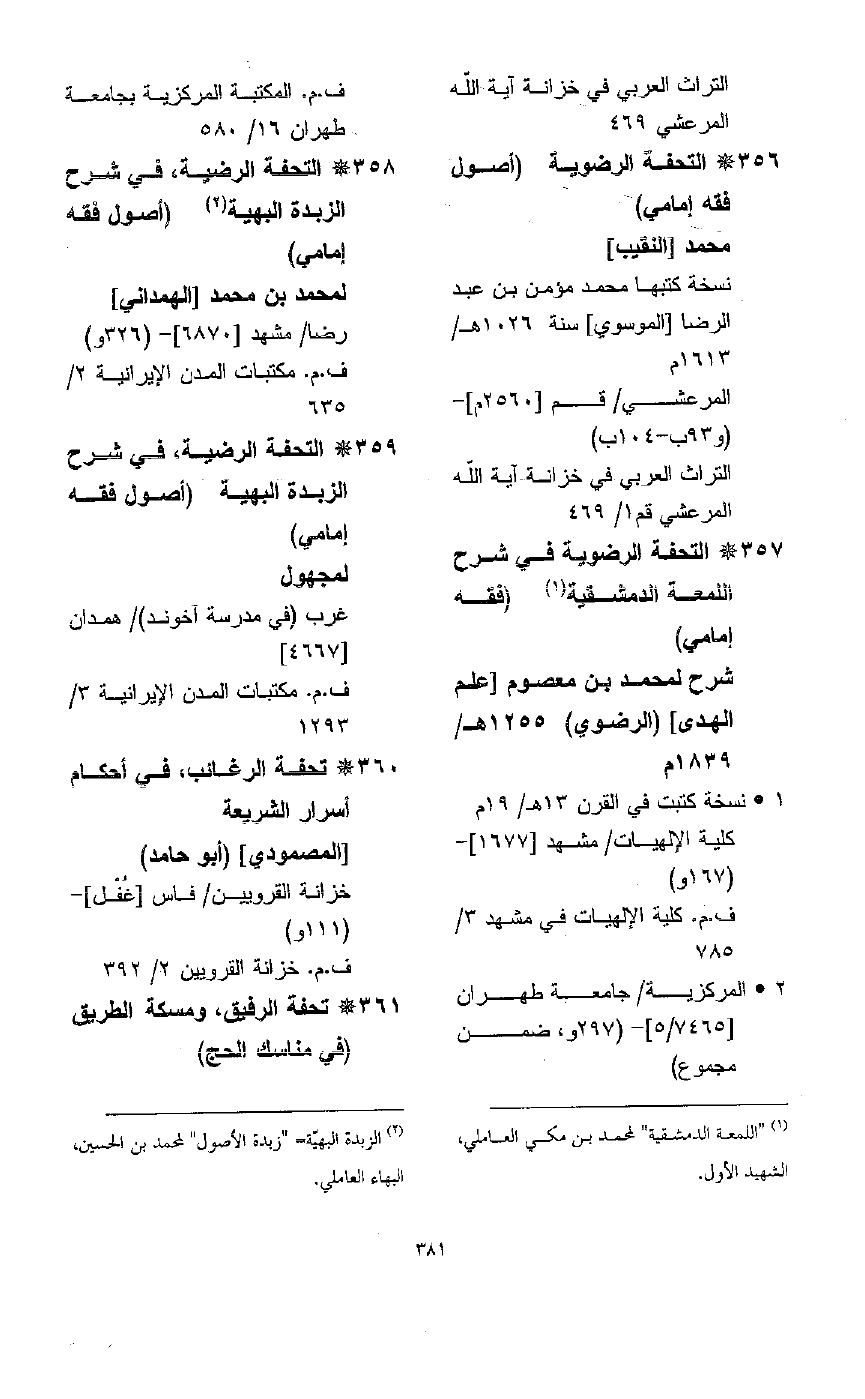 التراث العربي في خزانة آية اللّه
المرعشي ٤٦٩
٣٥٦* التحفة الرضوية (أصول
فقه إمامي)
محمد [النقيب]
نسخة كتبها محمد مؤمن بن عبد
الرضا [الموسوي] سنة ١٠٢٦هـ/
١٦١٣م
المرعشي/ قم [٢٥٦٠م]-
(و٩٣ب-١٠٤ب)
التراث العربي في خزانة آية اللّه
المرعشي قم١/ ٤٦٩
٣٥٧* التحفة الرضوية في شرح
اللمعة الدمشقية(١) (فقه
إمامي)
شرح لمحمد بن معصوم [علم
الهدى] (الرضوي) ١٢٥٥هـ/
١٨٣٩م
١ • نسخة كتبت في القرن ١٣هـ/ ١٩م
كلية الإلهيات/ مشهد [١٦٧٧]-
(١٦٧و)
ف.م. كلية الإلهيات في مشهد ٣/
٧٨٥
٢ • المركزية/ جامعة طهران
[٥/٧٤٦٥]- (٢٩٧و، ضمن
مجموع)
ف.م. المكتبة المركزية بجامعة
طهران ١٦/ ٥٨٠
٣٥٨* التحفة الرضية، في شرح
الزبدة البهية(٢) (أصول فقه
إمامي)
لمحمد بن محمد [الهمداني]
رضا/ مشهد [٦٨٧٠]- (٣٢٦و)
ف.م. مكتبات المدن الإيرانية ٢/
٦٣٥
٣٥٩* التحفة الرضية، في شرح
الزبدة البهية (أصول فقه
إمامي)
لمجهول
غرب (في مدرسة آخوند)/ همدان
[٤٦٦٧]
ف.م. مكتبات المدن الإيرانية ٣/
١٢٩٣
٣٦٠* تحفة الرغائب، في أحكام
أسرار الشريعة
[المصمودي] (أبو حامد)
خزانة القرويين/ فاس [غُفْل]-
(١١١و)
ف.م. خزانة القرويين ٢/ ٣٩٢
٣٦١* تحفة الرفيق، ومسكة الطريق
(في مناسك الحج)
(١) "اللمعة الدمشقية" لمحمد بن مكي العاملي،
الشهيد الأول.
(٢) الزبدة البهيّة= "زبدة الأصول" لمحمد بن الحسين،
البهاء العاملي.
٣٨١